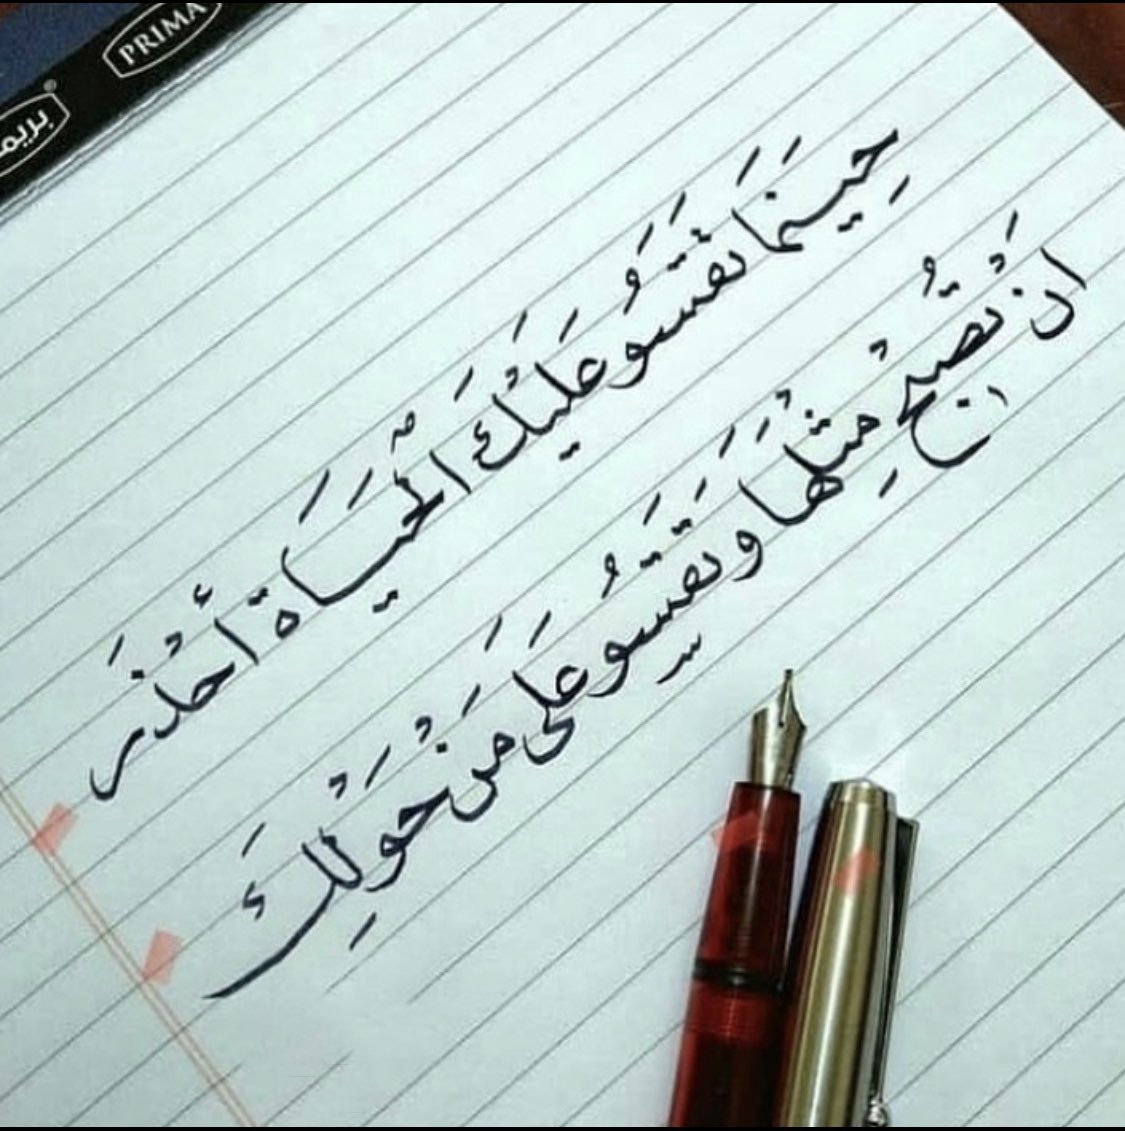 PRIMA
بريما
حِينَمَا تَقْسَو عَلَيْكَ الْحَيَاة أحْذَر
ان تُصْبِحْ مِثْلَهَا وتَقَسُو عَلَى مَنْ حَوْلِكَ